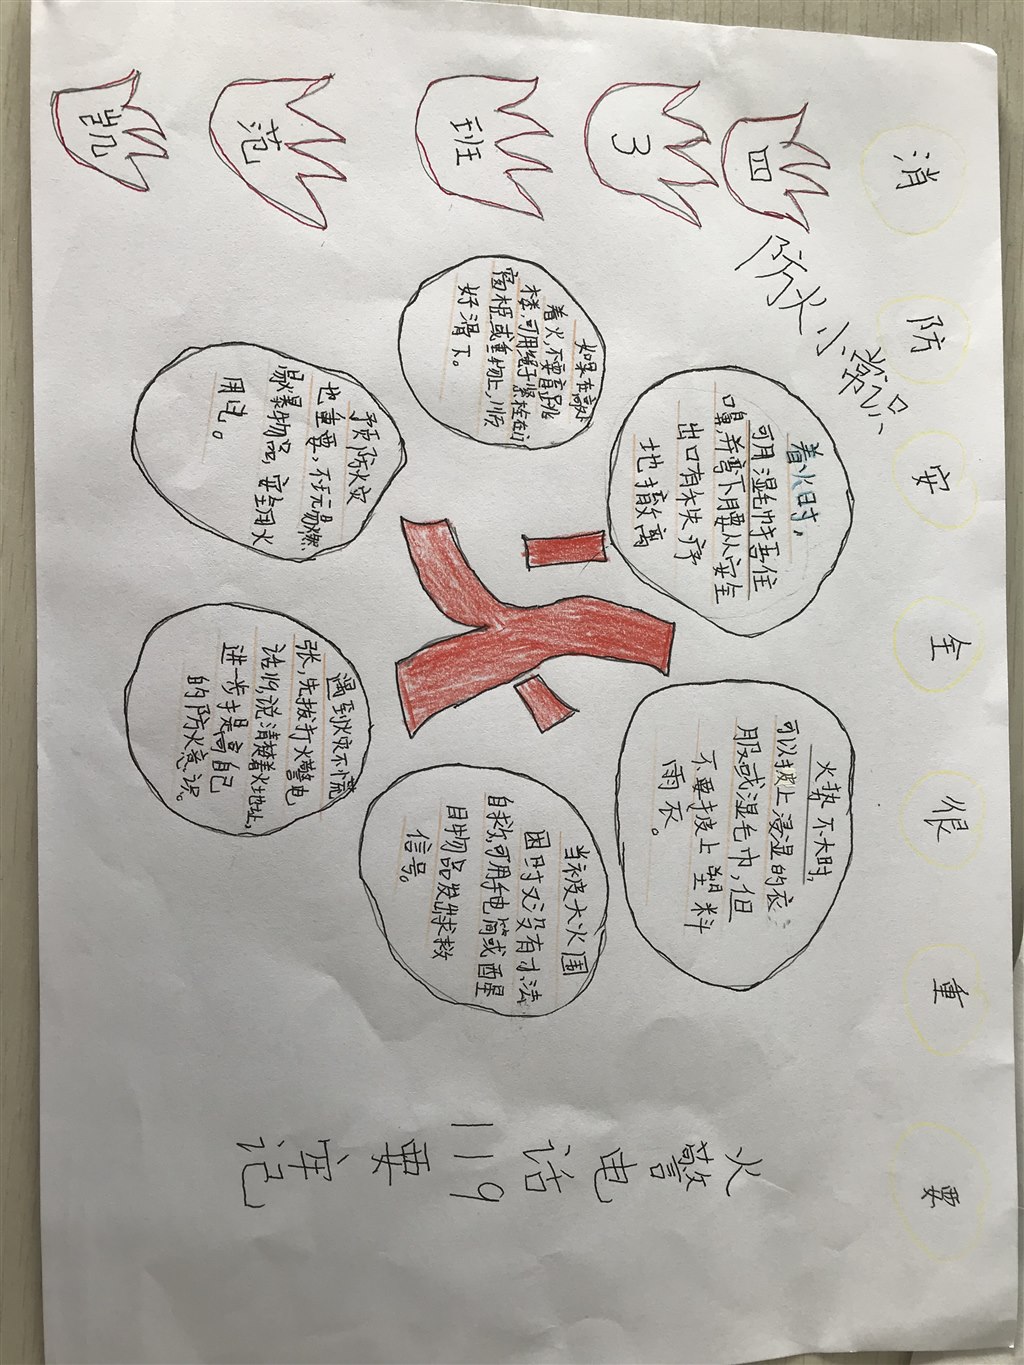 消防安全很重要
四
3
班
范
凯
防火小常识
如果在高处
着火,不要盲目跳
楼,可用绳子紧拴在门
窗框或重物上,顺
好滑下。
着火时,
可用湿毛巾捂住
口鼻,并弯下腰从安全
出口有秩序
地撤离
预防火灾
也重要,不玩易燃
易爆物品,安全用火
用电。
火势不大时,
可以披上浸湿的衣
服或湿毛巾,但
不要披上塑料
雨衣。
遇到火灾不慌
张,先拨打火警电
话119,说清楚着火地址,
进一步提高自己
的防火意识。
当被大火围
困时又没有办法
自救,可用手电筒或醒
目物品发出求救
信号。
火警
电
话
119
要
牢
记